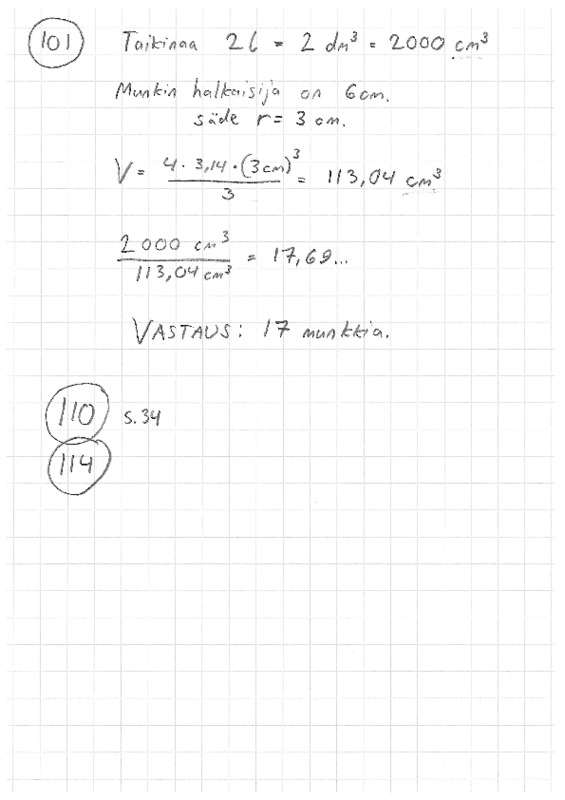 101 Taikinaa 2l = 2 dm³ = 2000 cm³
Munkin halkaisija on 6cm.
säde r = 3 cm.
V = 4 · 3,14 · (3cm)³ / 3 = 113,04 cm³
2000 cm³ / 113,04 cm³ = 17,69...
VASTAUS: 17 munkkia.
110 s.34
114